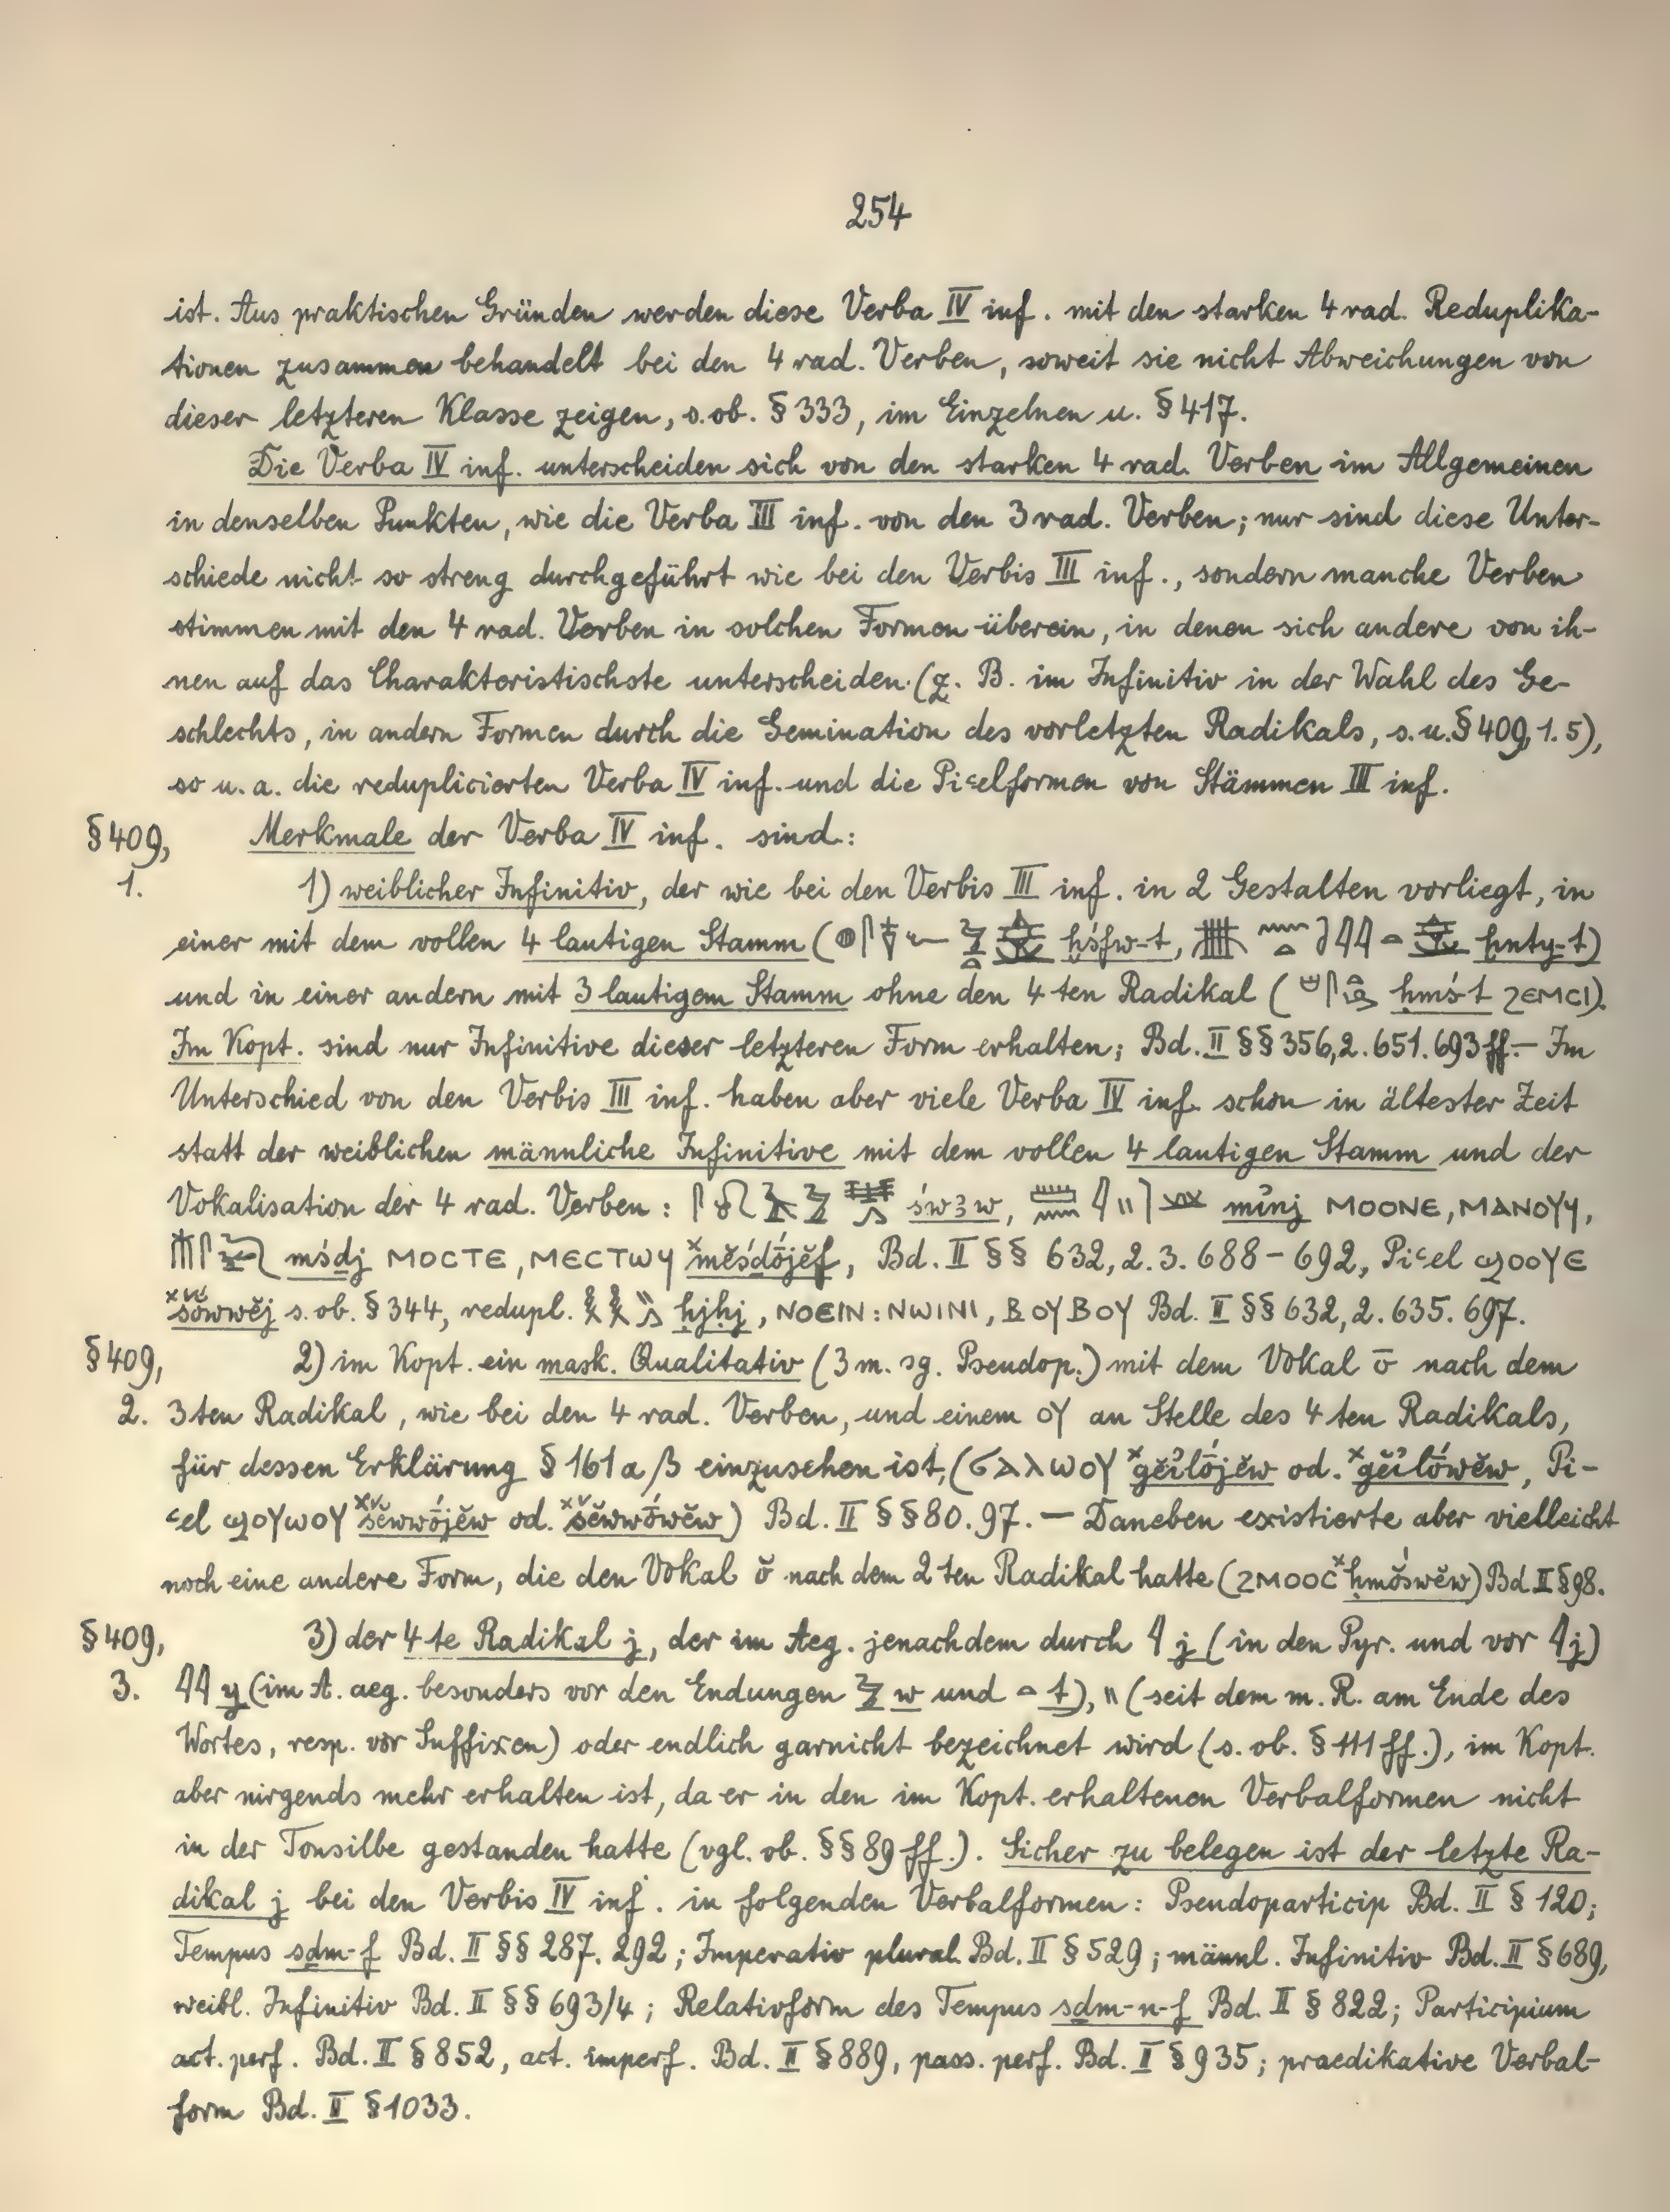 254
ist. Aus praktischen Gründen werden diese Verba IV inf. mit den starken 4 rad. Reduplika-
tionen zusammen behandelt bei den 4 rad. Verben, soweit sie nicht Abweichungen von
dieser letzteren Klasse zeigen, s. ob. § 333, im Einzelnen u. § 417.
Die Verba IV inf. unterscheiden sich von den starken 4 rad. Verben im Allgemeinen
in denselben Punkten, wie die Verba III inf. von den 3 rad. Verben; nur sind diese Unter-
schiede nicht so streng durchgeführt wie bei den Verbis III inf., sondern manche Verben
stimmen mit den 4 rad. Verben in solchen Formen überein, in denen sich andere von ih-
nen auf das Charakteristischste unterscheiden (z. B. im Infinitiv in der Wahl des Ge-
schlechts, in andern Formen durch die Gemination des vorletzten Radikals, s. u. § 409, 1. 5),
so u. a. die reduplicierten Verba IV inf. und die Piꜥelformen von Stämmen III inf.
§ 409, Merkmale der Verba IV inf. sind:
1. 1) weiblicher Infinitiv, der wie bei den Verbis III inf. in 2 Gestalten vorliegt, in
einer mit dem vollen 4 lautigen Stamm ( ḫśfw-t, ḫnty-t)
und in einer andern mit 3 lautigem Stamm ohne den 4 ten Radikal ( ḥmś-t ϩⲉⲙⲥⲓ).
Im Kopt. sind nur Infinitive dieser letzteren Form erhalten; Bd. II §§ 356, 2. 651. 693 ff. – Im
Unterschied von den Verbis III inf. haben aber viele Verba IV inf. schon in ältester Zeit
statt der weiblichen männliche Infinitive mit dem vollen 4 lautigen Stamm und der
Vokalisation der 4 rad. Verben: św3w, mỉnj ⲙⲟⲟⲛⲉ, ⲙⲁⲛⲟⲩϥ,
mśḏj ⲙⲟⲥⲧⲉ, ⲙⲉⲥⲧⲱϥ ˣmĕśḏṓjĕf, Bd. II §§ 632, 2. 3. 688 – 692, Piꜥel ϣⲟⲟⲩⲉ
ˣšówwĕj s. ob. § 344, redupl. ḥjḥj, ⲛⲟⲉⲓⲛ : ⲛⲱⲓⲛⲓ, ⲃⲟⲩⲃⲟⲩ Bd. II §§ 632, 2. 635. 697.
§ 409, 2) im Kopt. ein mask. Qualitativ (3 m. sg. Pseudop.) mit dem Vokal ō nach dem
2. 3ten Radikal, wie bei den 4 rad. Verben, und einem ⲟⲩ an Stelle des 4 ten Radikals,
für dessen Erklärung § 161 a β einzusehen ist, (ϭⲁⲗⲱⲟⲩ ˣgĕỉlṓjĕw od. ˣgĕỉlṓwĕw, Pi-
ꜥel ϣⲟⲩⲱⲟⲩ ˣšĕwwṓjĕw od. ˣšĕwwṓwĕw) Bd. II §§ 80. 97. – Daneben existierte aber vielleicht
noch eine andere Form, die den Vokal ŏ nach dem 2 ten Radikal hatte (ϩⲙⲟⲟⲥ ˣḥmŏ́śwĕw) Bd. II § 98.
§ 409, 3) der 4 te Radikal j, der im Aeg. jenachdem durch 𓇋 j (in den Pyr. und vor 𓇋 j)
3. 𓇋𓇋 y (im A. aeg. besonders vor den Endungen 𓅱 w und 𓏏 t), 𓏭 (seit dem m. R. am Ende des
Wortes, resp. vor Suffixen) oder endlich garnicht bezeichnet wird (s. ob. § 111 ff.), im Kopt.
aber nirgends mehr erhalten ist, da er in den im Kopt. erhaltenen Verbalformen nicht
in der Tonsilbe gestanden hatte (vgl. ob. §§ 89 ff.). Sicher zu belegen ist der letzte Ra-
dikal j bei den Verbis IV inf. in folgenden Verbalformen: Pseudoparticip Bd. II § 120;
Tempus sḏm-f Bd. II §§ 287. 292; Imperativ plural. Bd. II § 529; männl. Infinitiv Bd. II § 689,
weibl. Infinitiv Bd. II §§ 693/4; Relativform des Tempus sḏm-n-f Bd. II § 822; Participium
act. perf. Bd. II § 852, act. imperf. Bd. II § 889, pass. perf. Bd. II § 935; praedikative Verbal-
form Bd. II § 1033.